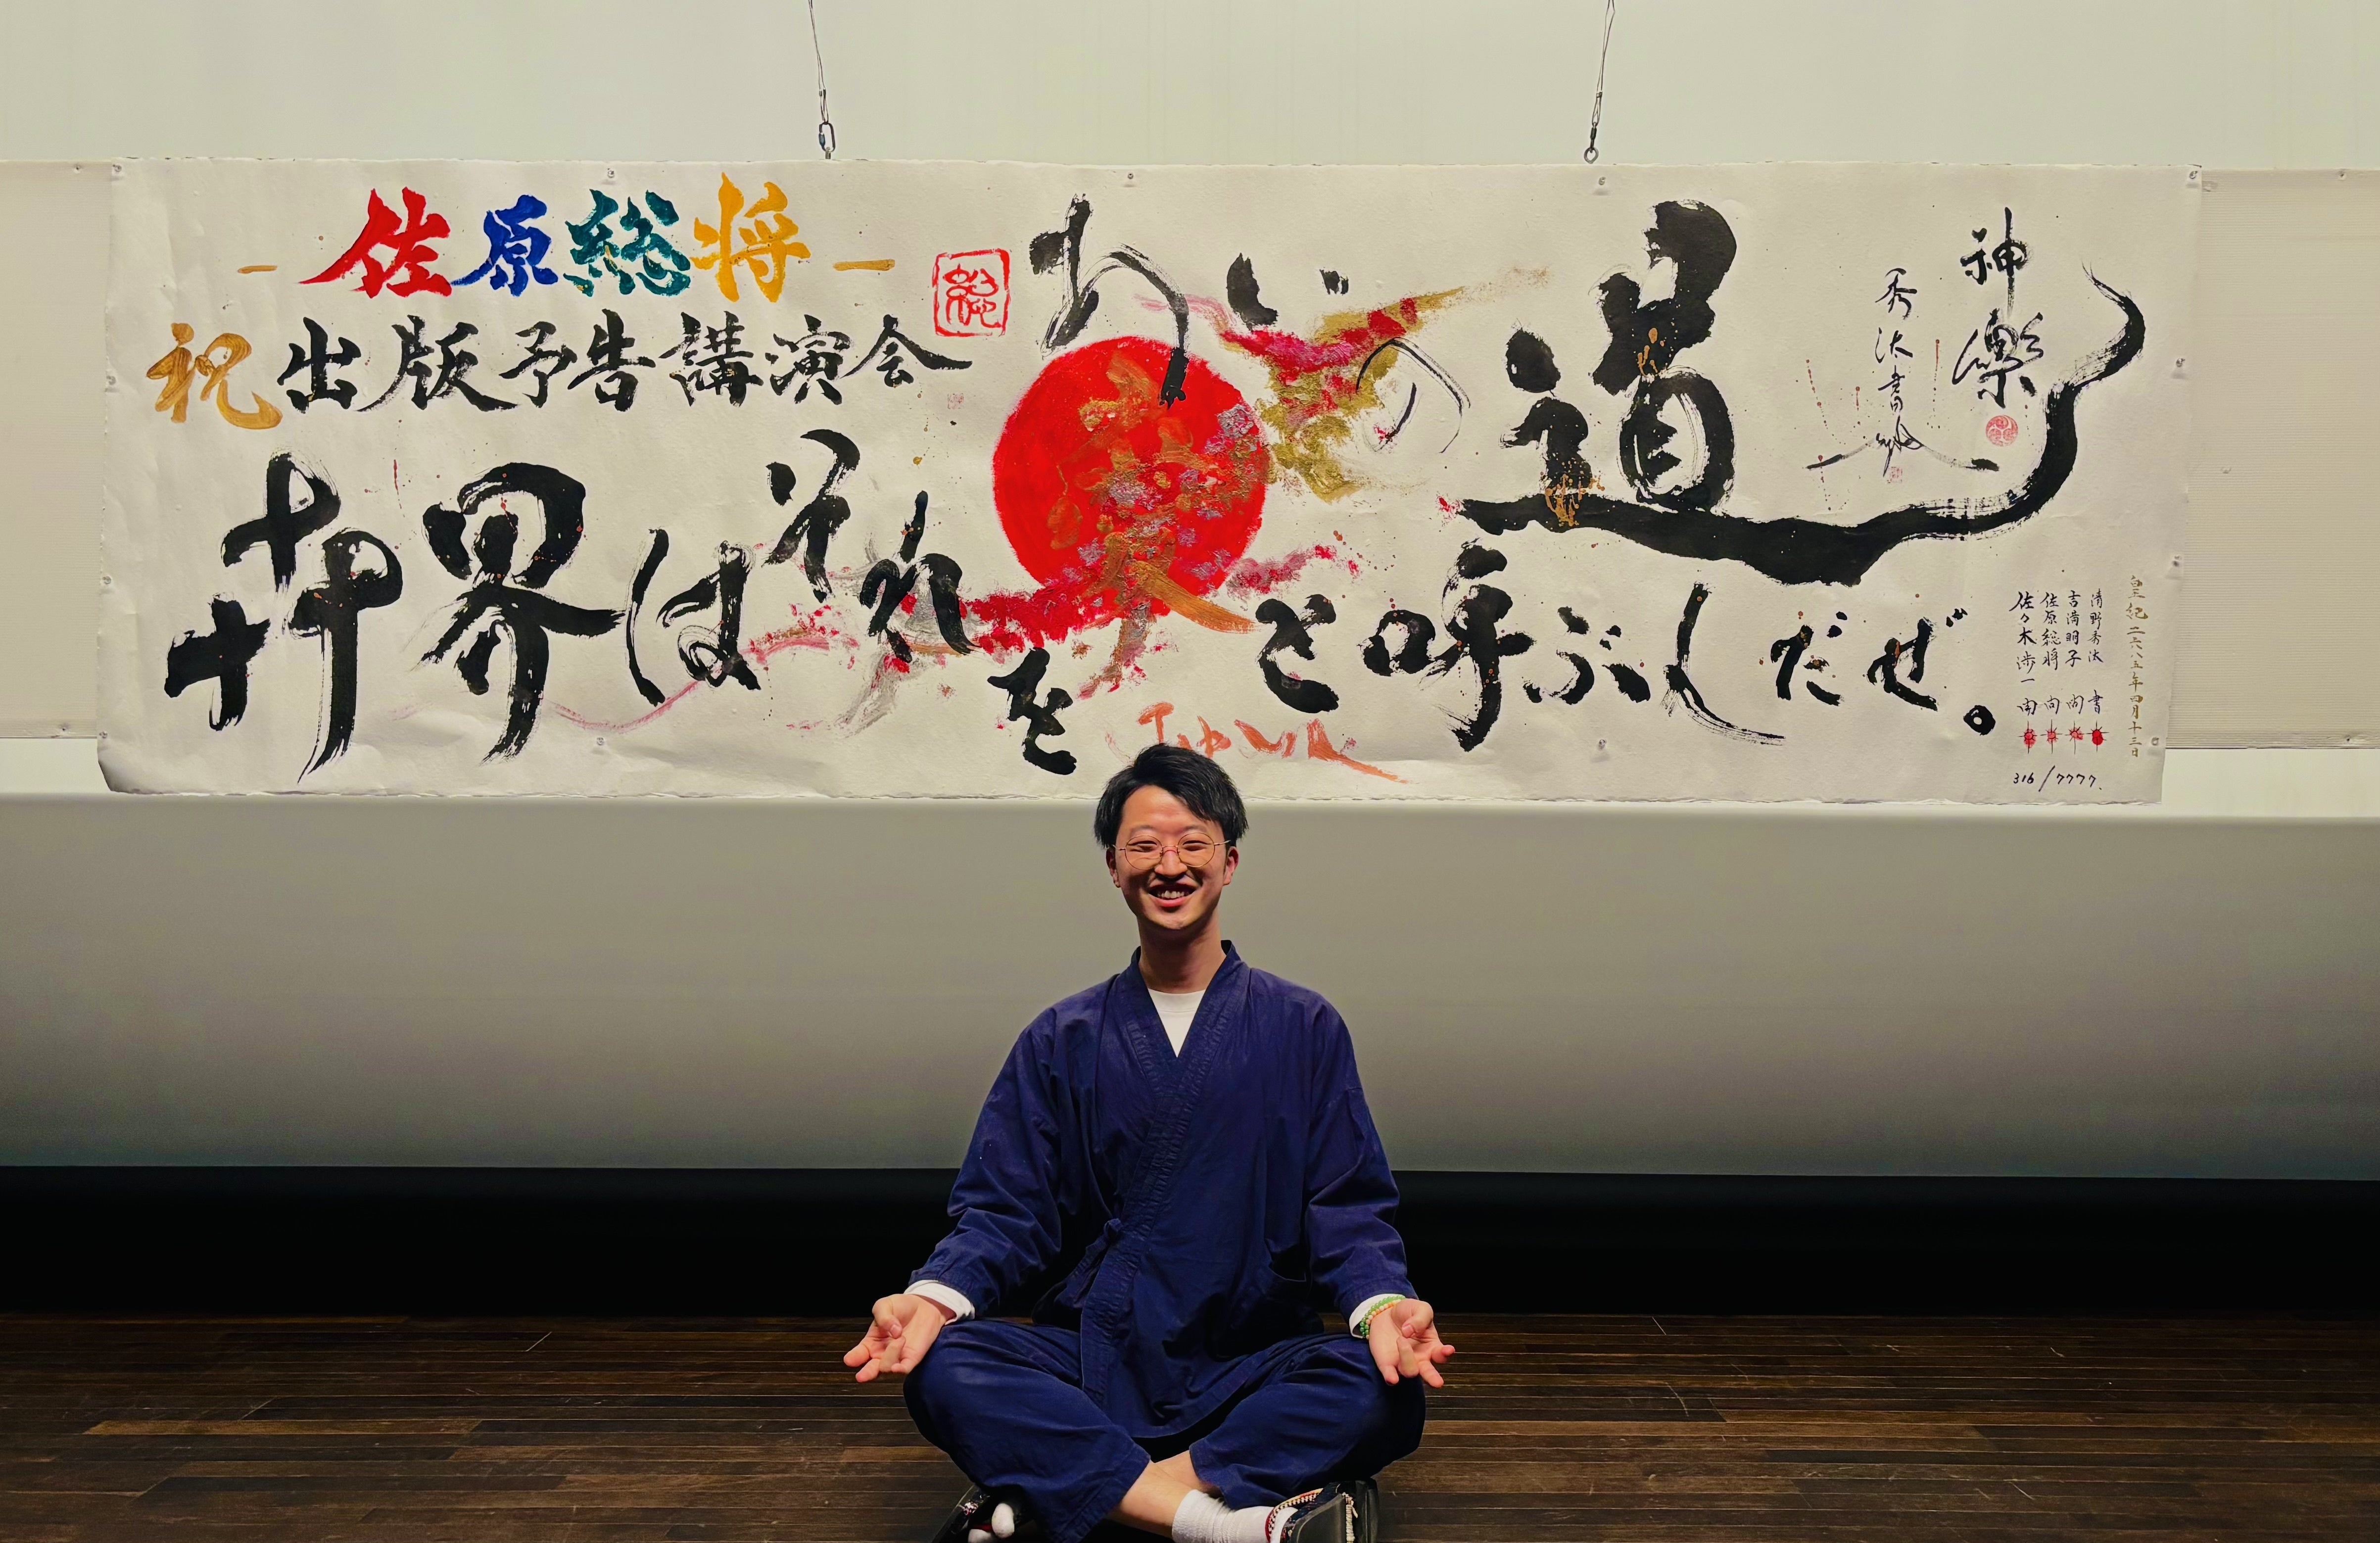 －佐原総将－
祝出版予告講演会
総
あいの道
世界はそれを愛と呼ぶんだぜ。
神樂
秀汰書
皇紀二六八五年四月十三日
清野秀汰 書
吉満明子
佐原総将
佐々木渉一
316/7777.